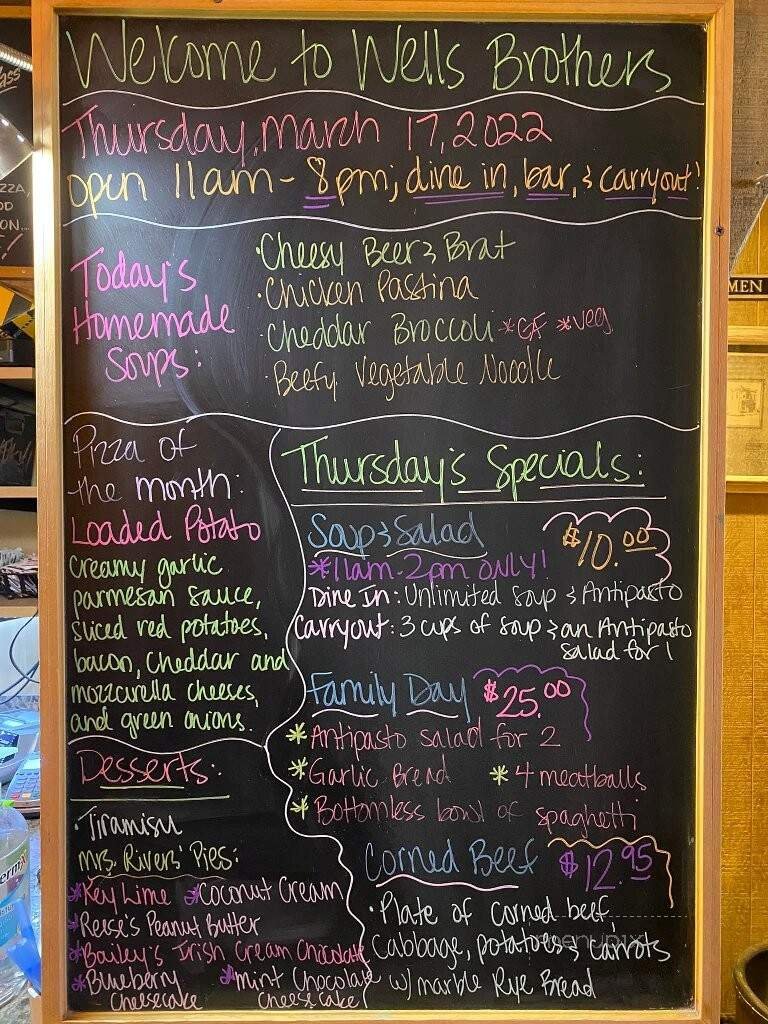 Welcome to Wells Brothers
Thursday, March 17, 2022
open 11am - 8pm; dine in, bar, & carryout!
Today's
Homemade
Soups:
· Cheesy Beer & Brat
· Chicken Pastina
· Cheddar Broccoli *GF *veg
· Beefy Vegetable Noodle
Pizza of
the month:
Loaded Potato
Creamy garlic
parmesan sauce,
sliced red potatoes,
bacon, cheddar and
mozzarella cheeses,
and green onions.
Desserts:
· Tiramisu
Mrs. Rivers' Pies:
*Key Lime *Coconut Cream
*Reese's Peanut Butter
*Bailey's Irish Cream Chocolate
*Blueberry Cheesecake
*Mint Chocolate Cheesecake
Thursday's Specials:
Soup & Salad $10.00
*11am-2pm ONLY!
Dine In: Unlimited Soup & Antipasto
Carryout: 3 cups of soup & an Antipasto
salad for 1
Family Day $25.00
*Antipasto salad for 2
*Garlic Bread *4 meatballs
*Bottomless bowl of spaghetti
Corned Beef $12.95
· Plate of corned beef
cabbage, potatoes & carrots
w/ marble Rye Bread
menupix
MEN